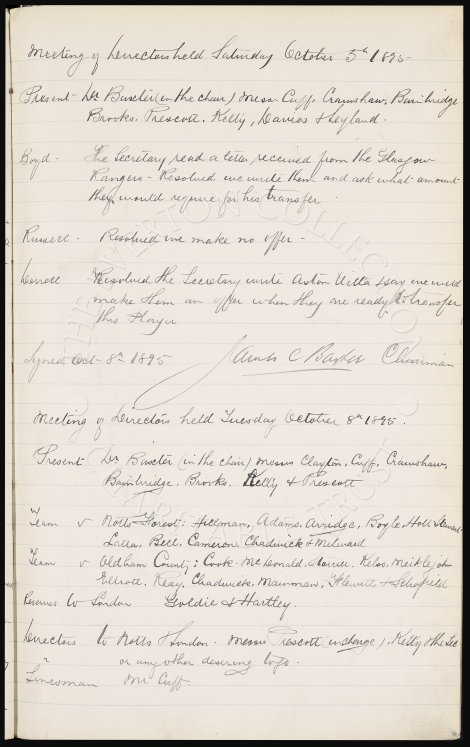 Meeting of Directors held Saturday October 5th 1895-
Present - Dr Baxter (in the chair) Messrs Cuff, Crawshaw, Bainbridge
Brooks, Prescott, Kelly, Davies & Leyland.
Boyd - The Secretary read a letter received from the Glasgow
Rangers - Resolved we write them and ask what amount
they would require for his transfer -
Russell - Resolved we make no offer -
Resolved the Secretary write Aston Villa & say we will
make them an offer when they are ready to transfer
this Player
Signed Oct 8th 1895 James C Baxter Chairman
Meeting of Directors held Tuesday October 8th 1895.
Present Dr Baxter (in the chair) Messrs Clayton, Cuff, Crawshaw,
Bainbridge, Brooks, Kelly & Prescott
Team v Notts Forest: Hillman, Adams, Arridge, Boyle, Holt Stewart
Latta, Bell, Cameron, Chadwick & Milward
Team v Oldham County: Cook, McDonald, Storrier, Kelso, Meiklejohn
Elliott, Reay, Chadwick, Murman, Hewitt & Schofield
Reserves to London Goldie & Hartley.
Directors to Notts & London - Messrs Prescott (in charge), Kelly & the Sec
or any other desiring to go -
" Linesman Mr Cuff.
THE EVERTON COLLECTION
CHARITABLE TRUST